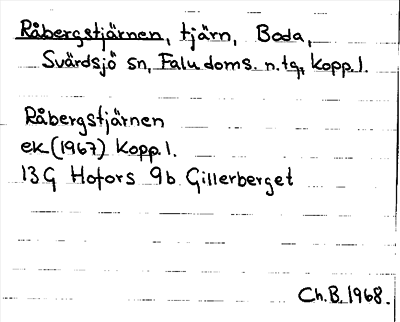 Råbergstjärnen, tjärn, Boda,
Svärdsjö sn, Falu doms. n. tg, Kopp. l.
Råbergstjärnen
ek (1967) Kopp. l.
13G Hofors 9b Gillerberget
Ch. B. 1968.